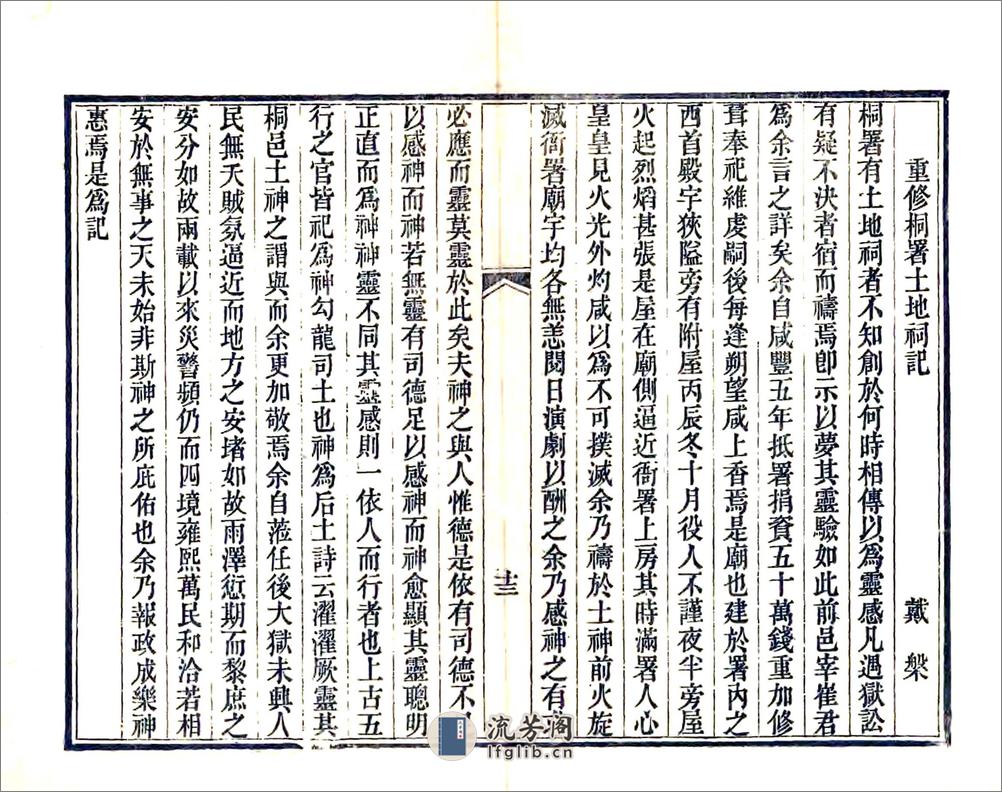 重修桐署土地祠記　戴槃
桐署有土地祠者不知創於何時相傳以爲靈感凡遇獄訟
有疑不決者宿而禱焉卽示以夢其靈驗如此前邑宰崔君
爲余言之詳矣余自咸豐五年抵署捐資五十萬錢重加修
葺奉祀維虔嗣後每逢朔望咸上香焉是廟也建於署內之
西首殿宇狹隘旁有附屋丙辰冬十月役人不謹夜半旁屋
火起烈熖甚張是屋在廟側逼近衙署上房其時滿署人心
皇皇見火光外灼咸以爲不可撲滅余乃禱於土神前火旋
滅衙署廟宇均各無恙閱日演劇以酬之余乃感神之有
十三
必應而靈莫靈於此矣夫神之與人惟德是依有司德不
以感神而神若無靈有司德足以感神而神愈顯其靈聰明
正直而爲神神靈不同其靈感則一依人而行者也上古五
行之官皆祀爲神勾龍司土也神爲后土詩云濯濯厥靈其
桐邑土神之謂與而余更加敬焉余自蒞任後大獄未興人
民無夭賊氛逼近而地方之安堵如故雨澤愆期而黎庶之
安分如故兩載以來災警頻仍而四境雍熙萬民和洽若相
安於無事之天未始非斯神之所庇佑也余乃報政成樂神
惠焉是爲記
流芳閣
lfglib.cn